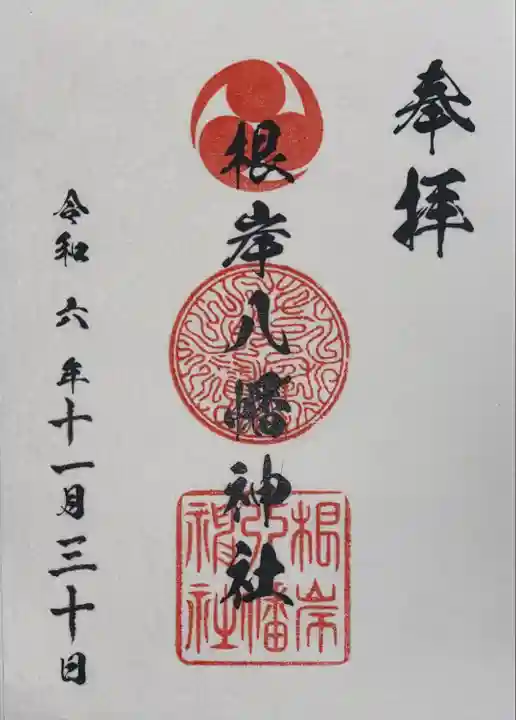 奉拝
根岸八幡神社
根岸八幡神社
令和六年十一月三十日